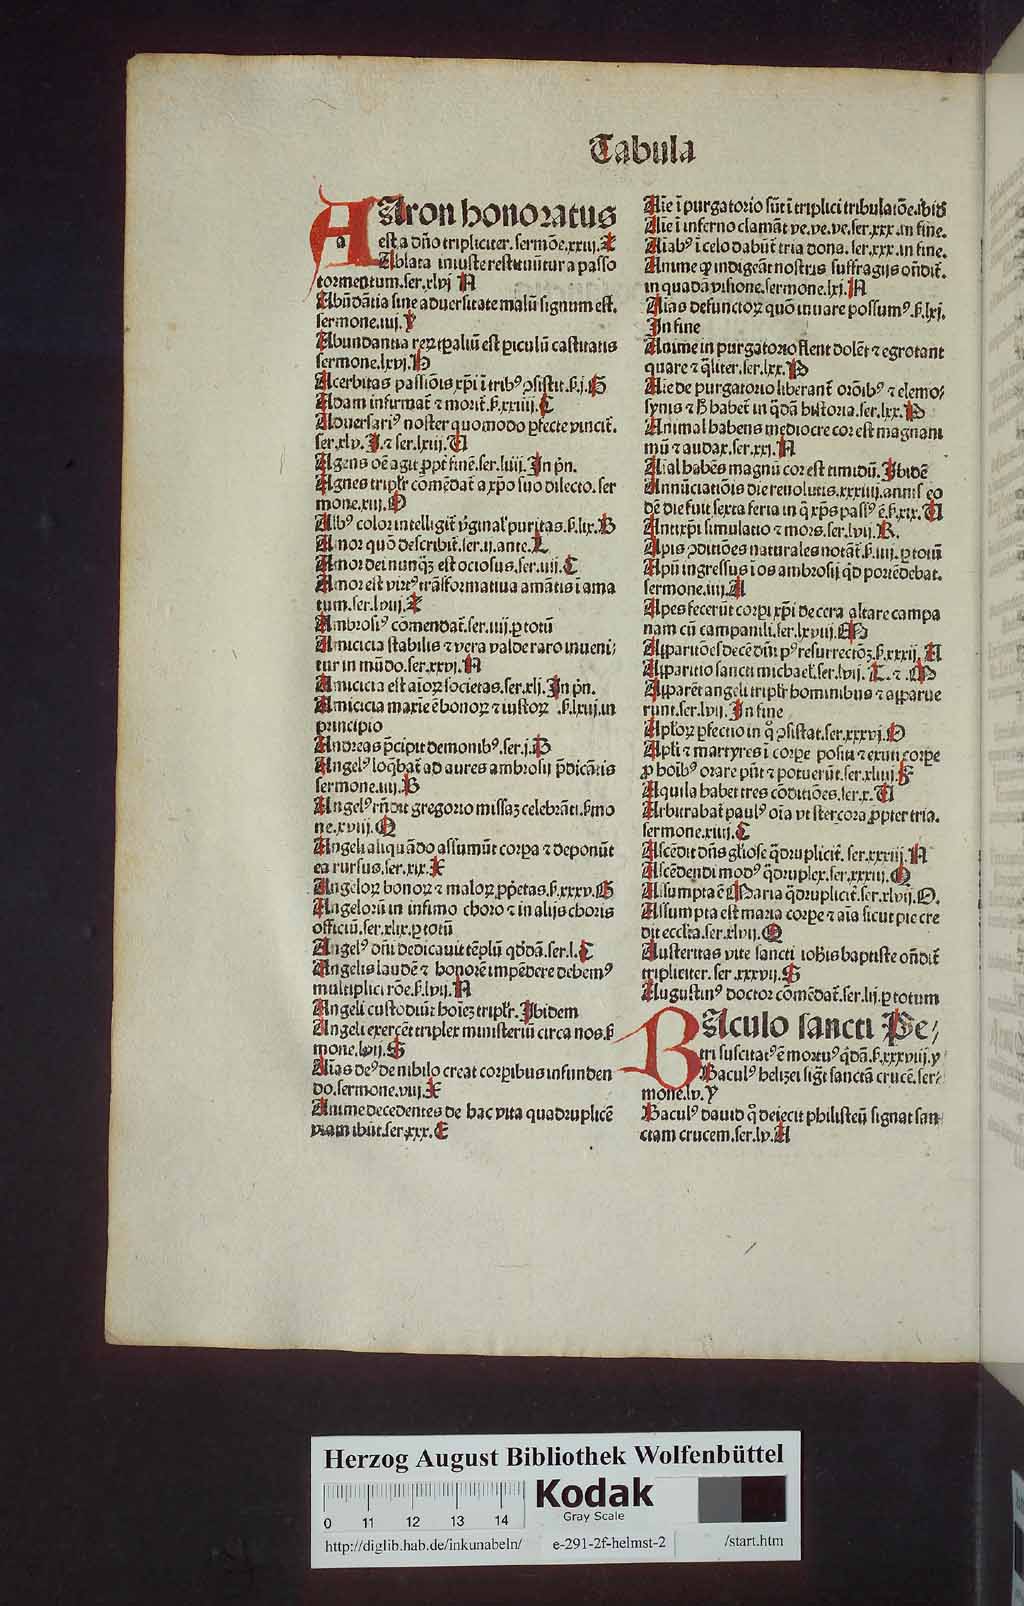 Tabula
Aaron honoratus
est a dño tripliciter. sermõe. xxiij. X
Ablata iniuste restituũtur a passo
tormentum. ser. xlvj N
Abũdãtia sine aduersitate malũ signum est.
sermone. iiij. Y
Abundantia reꝝ tꝑaliũ est ꝑiculũ castitatis
sermone. lxvj. P
Acerbitas passiõis xp̃i ĩ tribꝰ ꝯsistit. ẜ. j. G
Adam infirmat̃ ⁊ morit̃. ẜ. xxiiij. C
Aduersariꝰ noster quomodo ꝑfecte vincit̃.
ser. xlv. I. ⁊ ser. lxiij. V
Agens oẽ agit ꝓpt̃ finẽ. ser. liiij. In pñ.
Agnes triplr̃ cõmẽdat̃ a xp̃o suo dilecto. ser
mone. xiij. O
Albꝰ color intelligit̃ ṽginal̃ puritas. ẜ. lix. B
Amor quõ describit̃. ser. ij. ante. L
Amor dei nunq̃ꝫ est ociosus. ser. iiij. C
Amor est virtꝰ trãsformatiua amãtis ĩ ama
tum. ser. lviij. X
Ambrosiꝰ cõmendat̃. ser. iiij. ꝑ totũ
Amicicia stabilis ⁊ vera valde raro inueni⸗
tur in mũdo. ser. xxvj. N
Amicicia est aĩoꝝ societas. ser. xlj. In pñ.
Amicicia maxĩe ẽ bonoꝝ ⁊ iustoꝝ. ẜ. lxiij. in
principio
Andreas p̃cipit demonibꝰ. ser. j. B
Angelꝰ loq̃bat̃ ad aures ambrosij p̃dicãtis
sermone. iiij. B
Angelꝰ rñdit gregorio missaꝫ celebrãti. ẜmo
ne. xviij. Q
Angeli aliquãdo assumũt corꝑa ⁊ deponũt
ea rursus. ser. xix. X
Angeloꝝ bonoꝝ ⁊ maloꝝ ꝓp̃etas. ẜ. xxxv. G
Angelorũ in infimo choro ⁊ in alijs choris
officiũ. ser. xlix. ꝑ totũ
Angelꝰ dñi dedicauit tẽplũ qd̃dã. ser. l. C
Angelis laudẽ ⁊ honorẽ impẽdere debemꝰ
multiplici rõe. ẜ. lvij. N
Angeli custodiũt hoĩeꝫ triplr̃. Ibidem
Angeli exercẽt triplex ministeriũ circa nos. ẜ
mone. lvij. S
Aĩas deꝰ de nihilo creat corꝑibus infunden
do. sermone. viij. X
Anime decedentes de hac vita quadruplicẽ
viam ibũt. ser. xxx. E
Aĩe ĩ purgatorio sũt ĩ triplici tribulatiõe. ibid̃
Aĩe ĩ inferno clamãt ve. ve. ve. ser. xxx. in fine.
Aĩabꝰ ĩ celo dabũt̃ tria dona. ser. xxx. in fine.
Anime ꝙ indigeãt nostris suffragijs oñdit̃.
in quadã visione. sermone. lxj. N
Aĩas defunctoꝝ quõ iuuare possumꝰ. ẜ. lxj.
In fine
Anime in purgatorio flent dolẽt ⁊ egrotant
quare ⁊ q̃liter. ser. lxx. P
Aĩe de purgatorio liberant̃ or̃õibꝰ ⁊ elemo⸗
synis ⁊ h̃ habet̃ in q̃dã historia. ser. lxx. P
Animal habens mediocre cor est magnani
mũ ⁊ audax. ser. xxj. N
Aĩal habẽs magnũ cor est timidũ. Ibidẽ
Annũciatiõis die reuolutis. xxxiiij. annis eo
dẽ die fuit sexta feria in q̃ xp̃s passꝰ ẽ. ẜ. xix. V
Antixp̃i simulatio ⁊ mors. ser. lvij. R.
Apis ꝯditiões naturales notãt̃. ẜ. iiij. ꝑ totũ
Apũ ingressus ĩ os ambrosij qd̃ portẽdebat.
sermone. iiij. A
Apes fecerũt corpi xp̃i de cera altare campa
nam cũ campanili. ser. lxviij. M
Apparitiões decẽ dñi pꝰ resurrectiõꝫ. ẜ. xxxij. A
Apparitio sancti michael̃. ser. lvij. L. ⁊. M
Apparẽt angeli triplr̃ hominibus ⁊ apparue
runt. ser. lvij. In fine
Apl̃oꝝ ꝑfectio in q̊ ꝯsistat. ser. xxxvj. O
Apl̃i ⁊ martyres ĩ corꝑe positi ⁊ exuti corꝑe
ꝓ hoĩbꝰ orare pñt ⁊ potuerũt. ser. xliiij. F
Aquila habet tres cõditiões. ser. x. V
Arbitrabat̃ paulꝰ oĩa vt stercora ꝓpter tria.
sermone. xiiij. C
Ascẽdit dñs gl̃iose q̃druplicit̃. ser. xxxiij. N
Ascẽdendi modꝰ q̃druplex. ser. xxxiij. Q
Assumpta ẽ Maria q̃druplicit̃. ser. xlvij. O.
Assumpta est maria corꝑe ⁊ aĩa sicut pie cre
dit eccl̃ia. ser. xlvij. Q
Austeritas vite sancti ioh̃is baptiste oñdit̃
tripliciter. ser. xxxvij. S
Augustinꝰ doctor cõmẽdat̃. ser. lij. ꝑ totum
BAculo sancti Pe⸗
tri suscitatꝰ ẽ mortuꝰ q̃dã. ẜ. xxxviij. y
Baculꝰ helizei sigt̃ sanctã crucẽ. ser⸗
mone. lv. Y
Baculꝰ dauid q̊ deiecit philisteũ signat san⸗
ctam crucem. ser. lv. A
Herzog August Bibliothek Wolfenbüttel
0 11 12 13 14
Kodak
Gray Scale
http://diglib.hab.de/inkunabeln/ e-291-2f-helmst-2 /start.htm